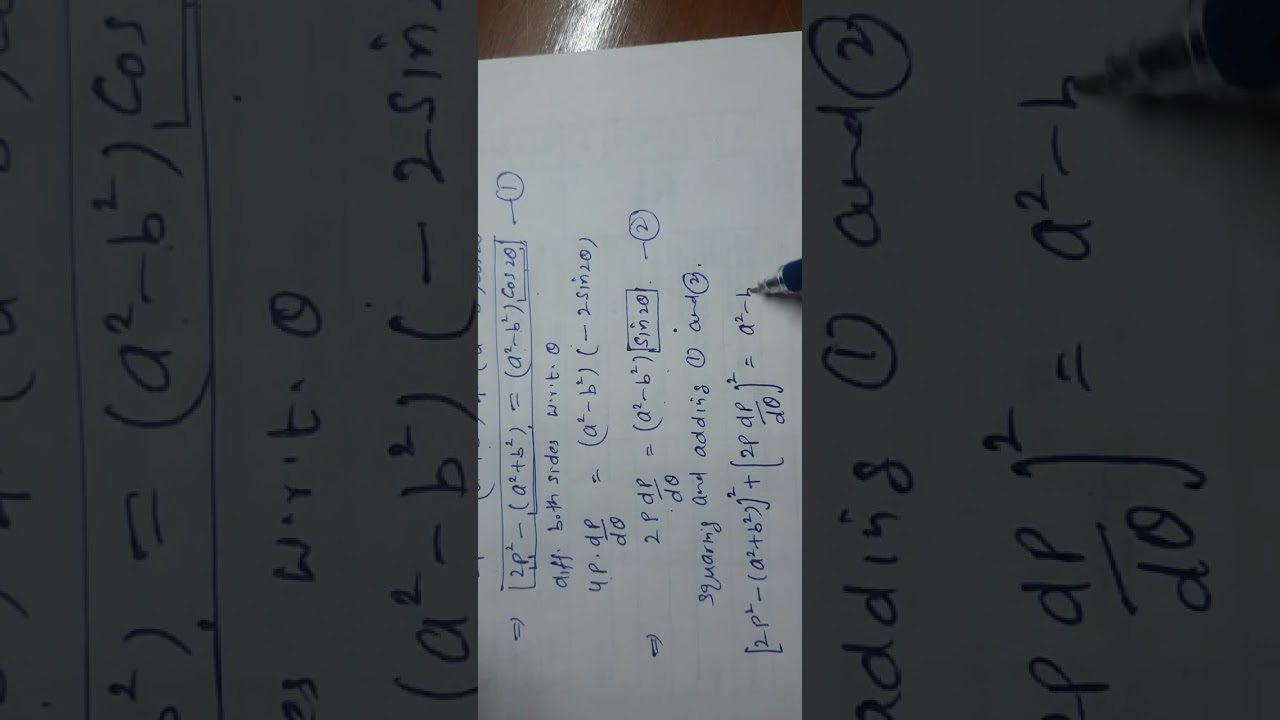 ⇒ [2P² − (a²+b²) = (a²−b²) Cos2θ] —①
diff. both sides w.r.t. θ
4P. dP/dθ = (a²−b²) (− 2Sin2θ)
⇒ 2P dP/dθ = (a²−b²) Sin2θ. —②
squaring and adding ① and ②.
[2P² − (a²+b²)]² + [2P dP/dθ]² = a²−b